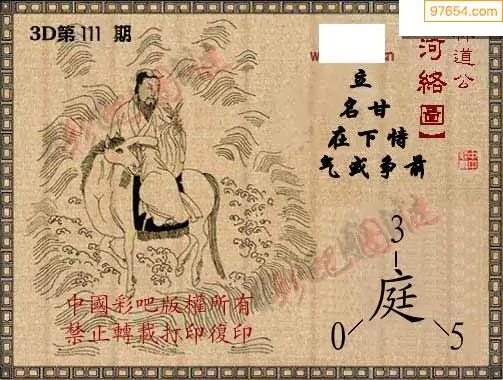 97654.com
3D第111期
道公
河絡圖】
立
名甘
在下恃
气或争前
3
庭
0
5
中國彩吧版權所有
禁止轉載打印復印